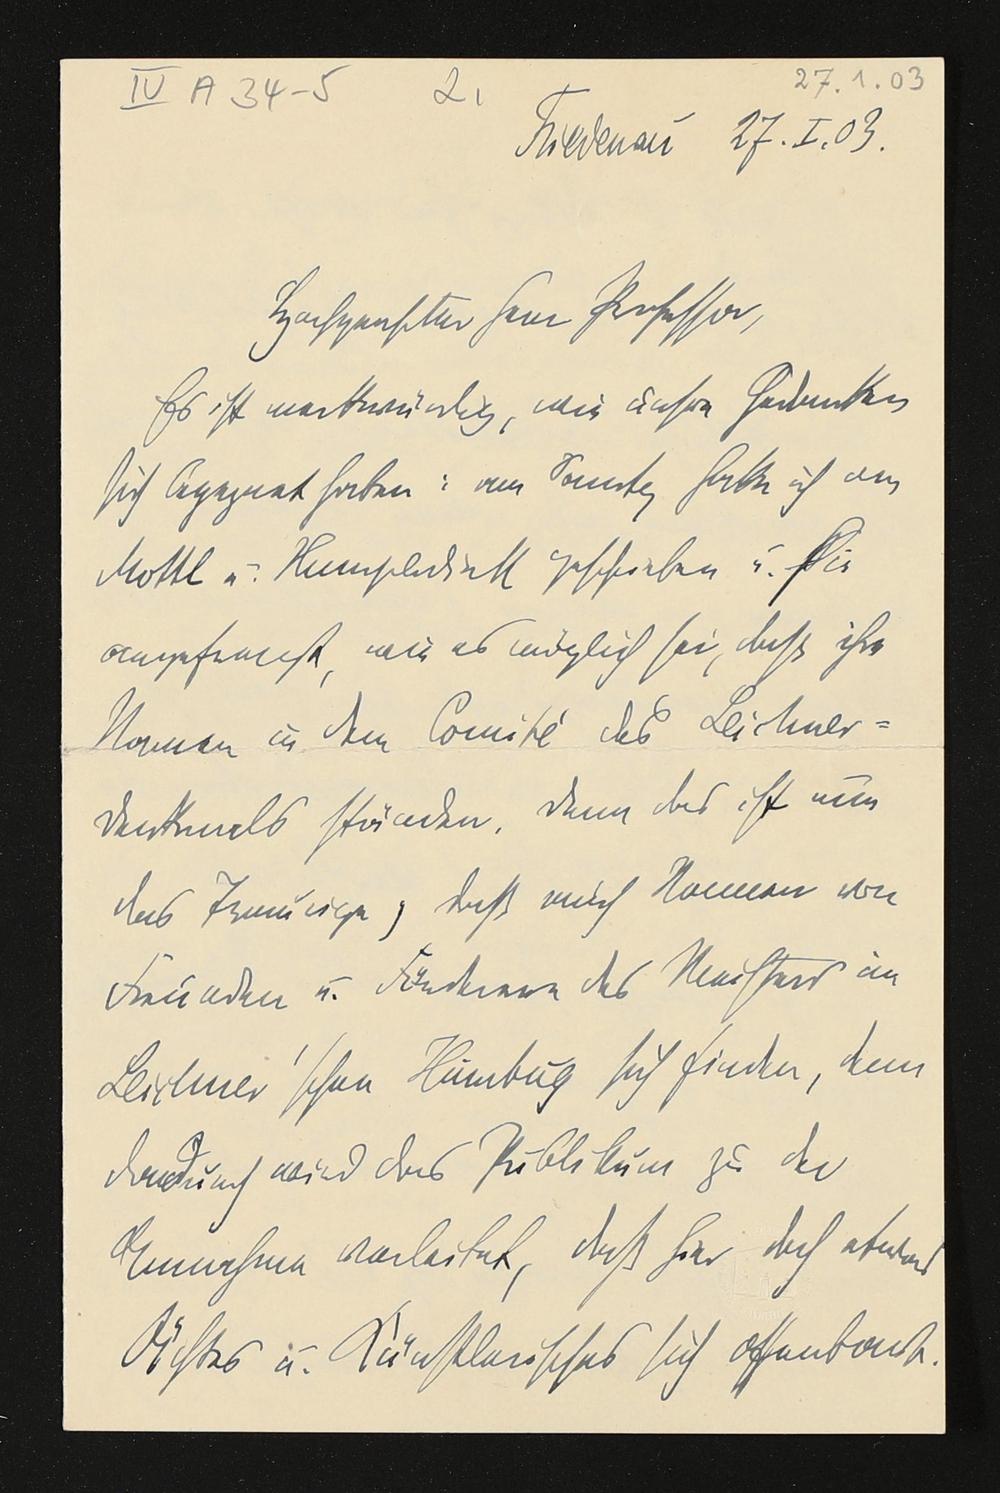 IV A 34-5 2, 27.1.03
Friedenau 27.I.03.
Hochgeehrter Herr Professor,
Es ist merkwürdig, wie unsre Gedanken
sich begegnet haben: am Sonntag hatte ich an
Mottl u. Humperdinck geschrieben u. Sie
angefragt, wie es möglich sei, daß ihre
Namen in dem Comité des Leichner=
denkmals ständen. Denn das ist nun
das Traurige, daß auch Namen von
Freunden u. Förderern des Meisters im
Leichner'schen Humbug sich finden, denn
dadurch wird das Publikum zu der
Annahme verleitet, daß hier doch etwas
Ächtes u. Künstlerisches sich offenbart.